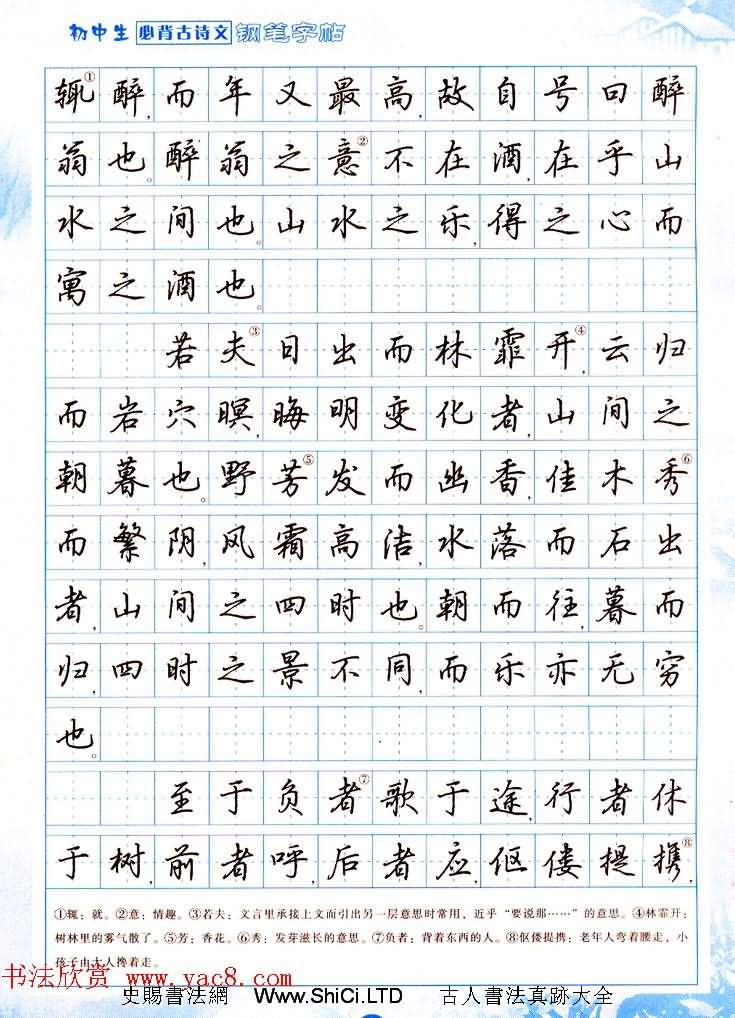 初中生 必背古诗文 钢笔字帖
辄①醉，而年又最高，故自号曰醉
翁也。醉翁之意②不在酒，在乎山
水之间也。山水之乐，得之心而
寓之酒也。
若夫③日出而林霏开④，云归
而岩穴暝，晦明变化者，山间之
朝暮也。野芳⑤发而幽香，佳木秀⑥
而繁阴，风霜高洁，水落而石出
者，山间之四时也。朝而往，暮而
归，四时之景不同，而乐亦无穷
也。
至于负者⑦歌于途，行者休
于树，前者呼，后者应，伛偻提携⑧
①辄：就。②意：情趣。③若夫：文言里承接上文而引出另一层意思时常用，近乎“要说那……”的意思。④林霏开：
树林里的雾气散了。⑤芳：香花。⑥秀：发芽滋长的意思。⑦负者：背着东西的人。⑧伛偻提携：老年人弯着腰走，小
孩子由大人搀着走。
书法欣赏 www.yac8.com
史賜書法網 Www.ShiCi.LTD 古人書法真跡大全